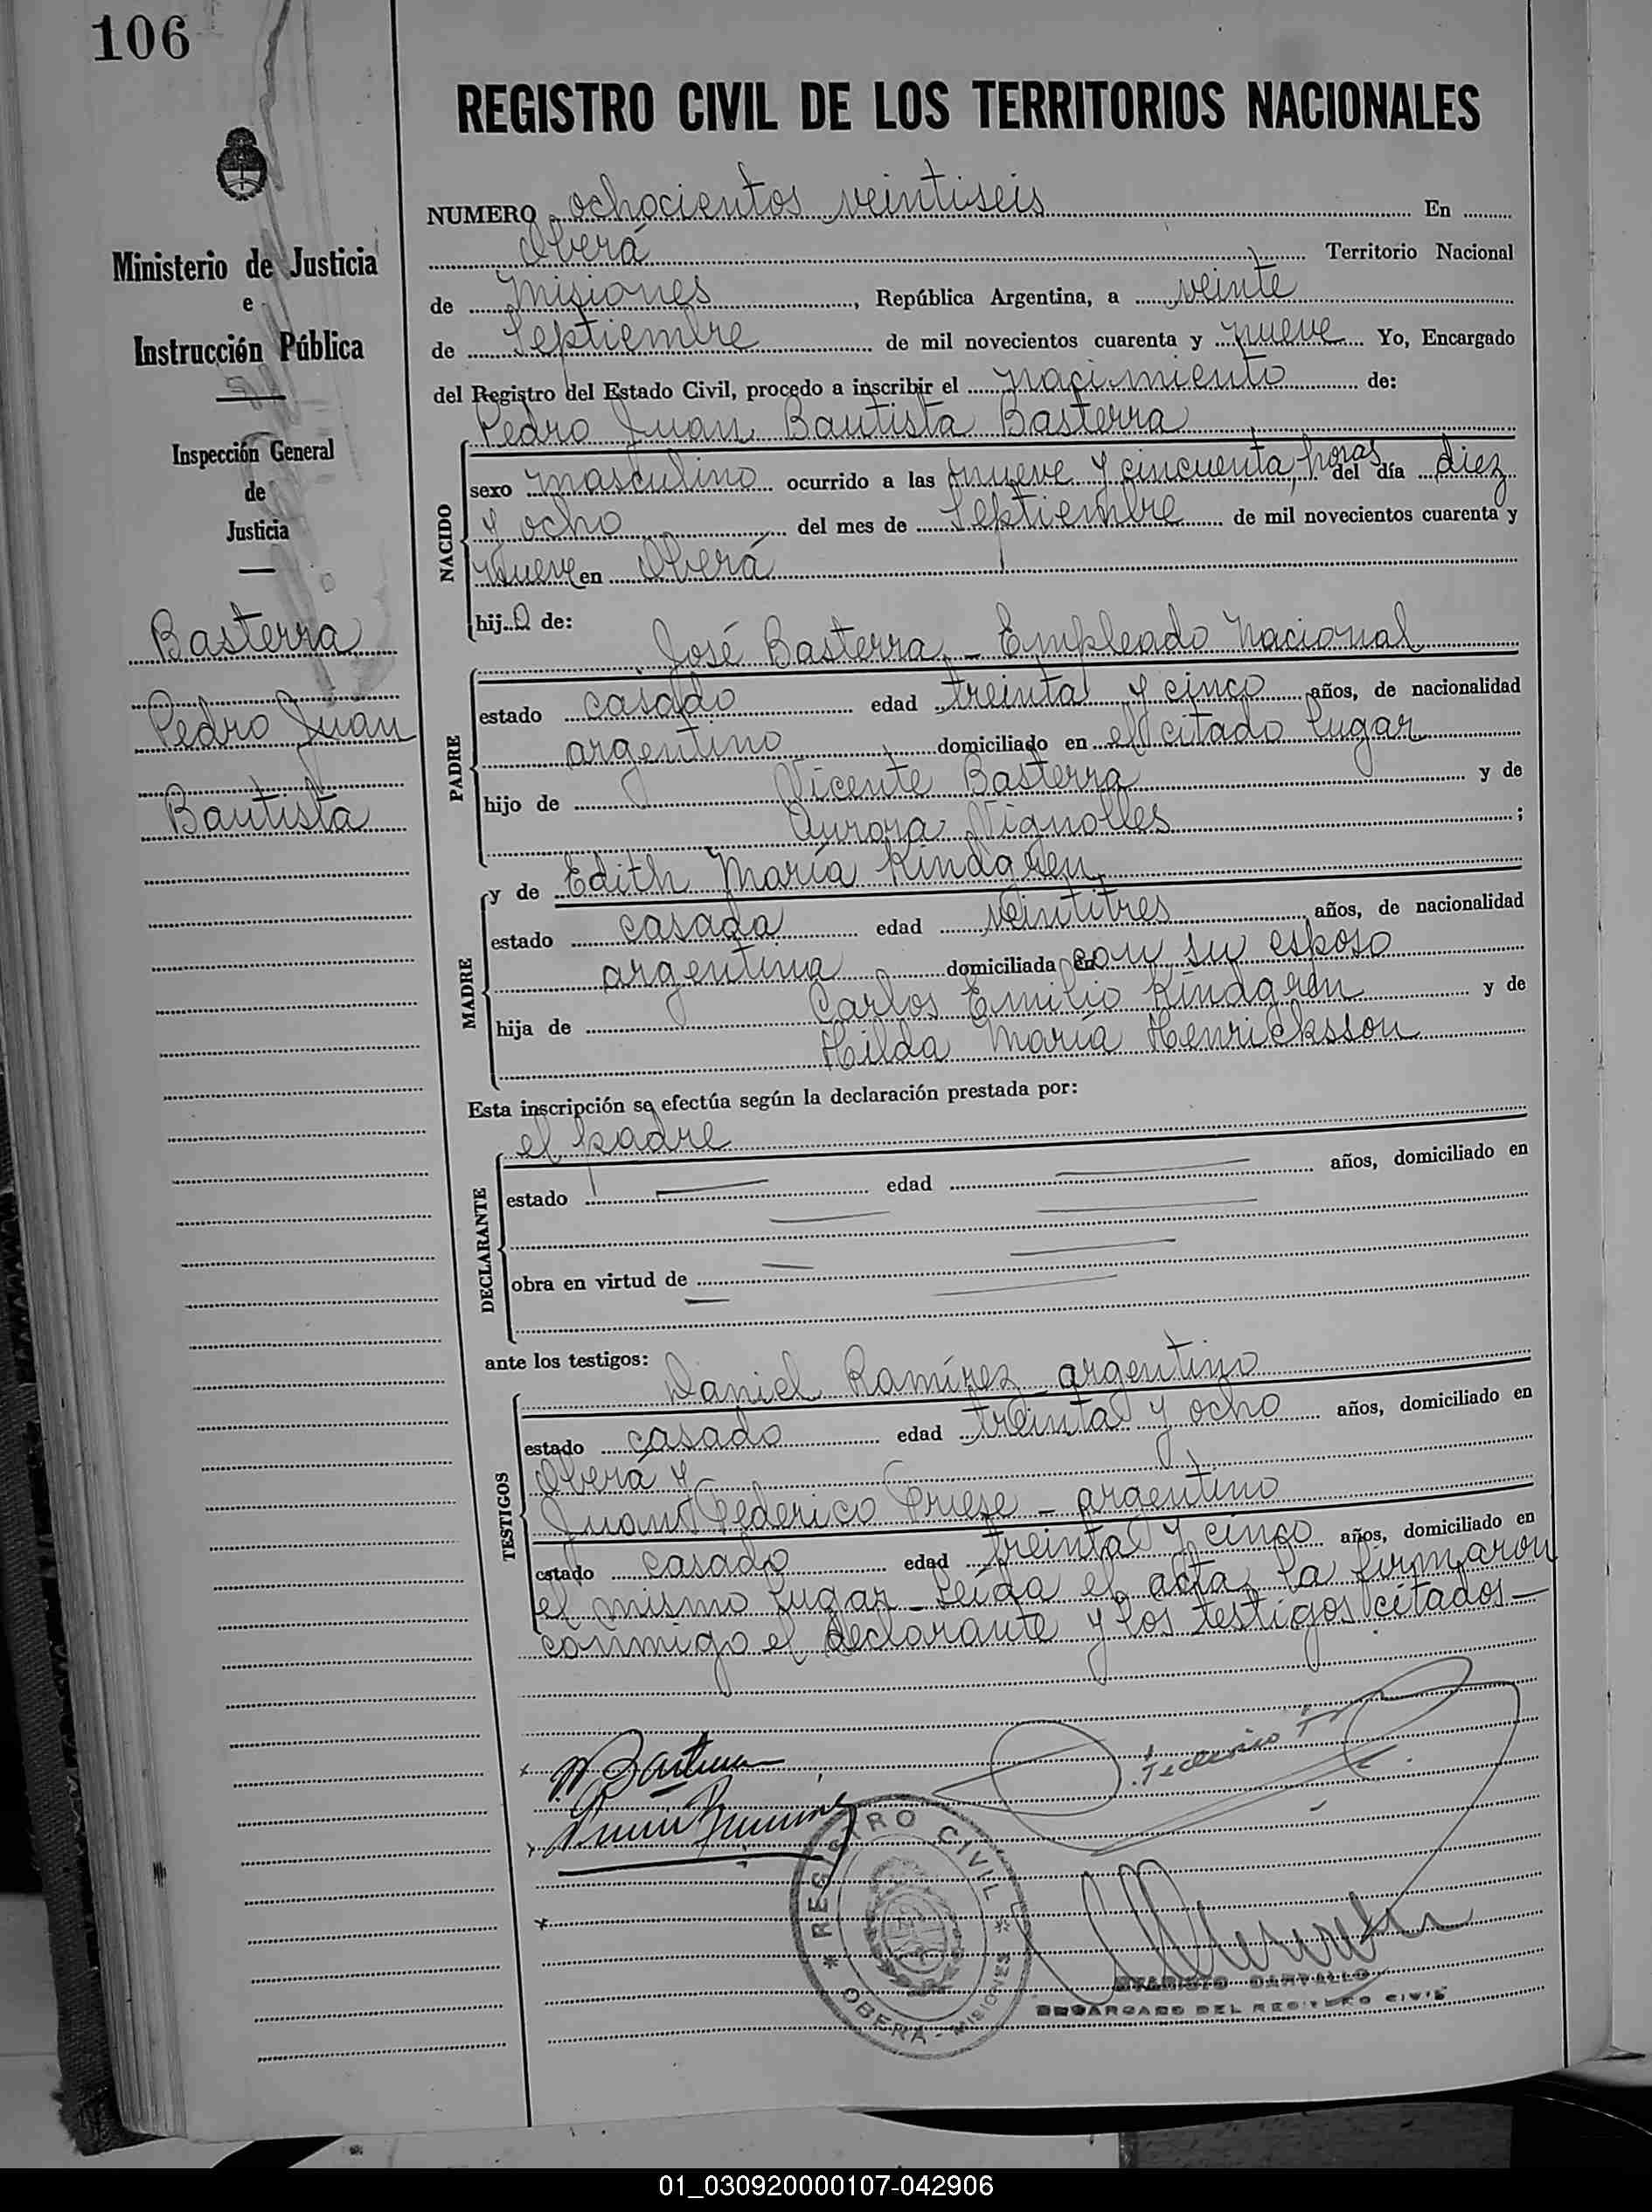 106
REGISTRO CIVIL DE LOS TERRITORIOS NACIONALES
NUMERO ochocientos veintiseis En
Oberá Territorio Nacional
de Misiones, República Argentina, a veinte
de Septiembre de mil novecientos cuarenta y nueve Yo, Encargado
del Registro del Estado Civil, procedo a inscribir el nacimiento de:
Pedro Juan Bautista Basterra
NACIDO
sexo masculino ocurrido a las nueve y cincuenta horas del día diez
y ocho del mes de Septiembre de mil novecientos cuarenta y
nueve en Oberá
hijo de:
José Basterra - Empleado Nacional
PADRE
estado casado edad treinta y cinco años, de nacionalidad
argentino domiciliado en el citado lugar
hijo de Vicente Basterra y de
Aurora Vignolles ;
MADRE
y de Edith María Kindgren
estado casada edad veintitres años, de nacionalidad
argentina domiciliada en con su esposo
hija de Carlos Emilio Kindgren y de
Hilda María Henricksson
Esta inscripción se efectúa según la declaración prestada por:
el padre
DECLARANTE
estado edad años, domiciliado en
obra en virtud de
ante los testigos:
Daniel Ramírez - argentino
TESTIGOS
estado casado edad treinta y ocho años, domiciliado en
Oberá y
Juan Federico Priese - argentino
estado casado edad treinta y cinco años, domiciliado en
el mismo lugar - Leída el acta, la firmaron
conmigo el declarante y los testigos citados -
Ministerio de Justicia
e
Instrucción Pública
Inspección General
de
Justicia
Basterra
Pedro Juan
Bautista
REGISTRO CIVIL
OBERÁ - MISIONES
ENCARGADO DEL REGISTRO CIVIL
01_030920000107-042906